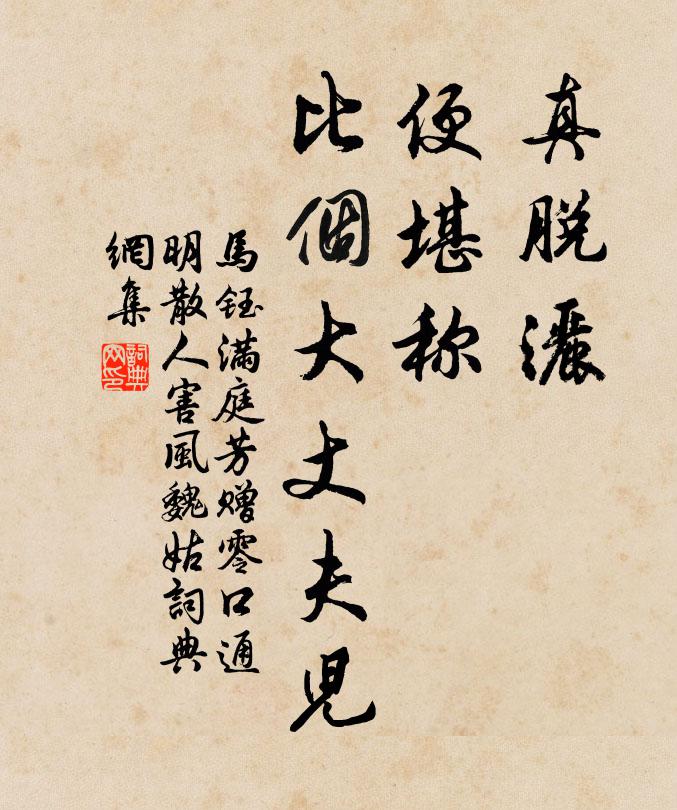 真脱灑
便堪称
比個大丈夫児
馬鈺满庭芳赠零口通
明散人害風魏姑詞典
網集
詞典
网印